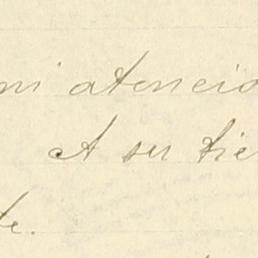 mi atenció
at su tie
te.